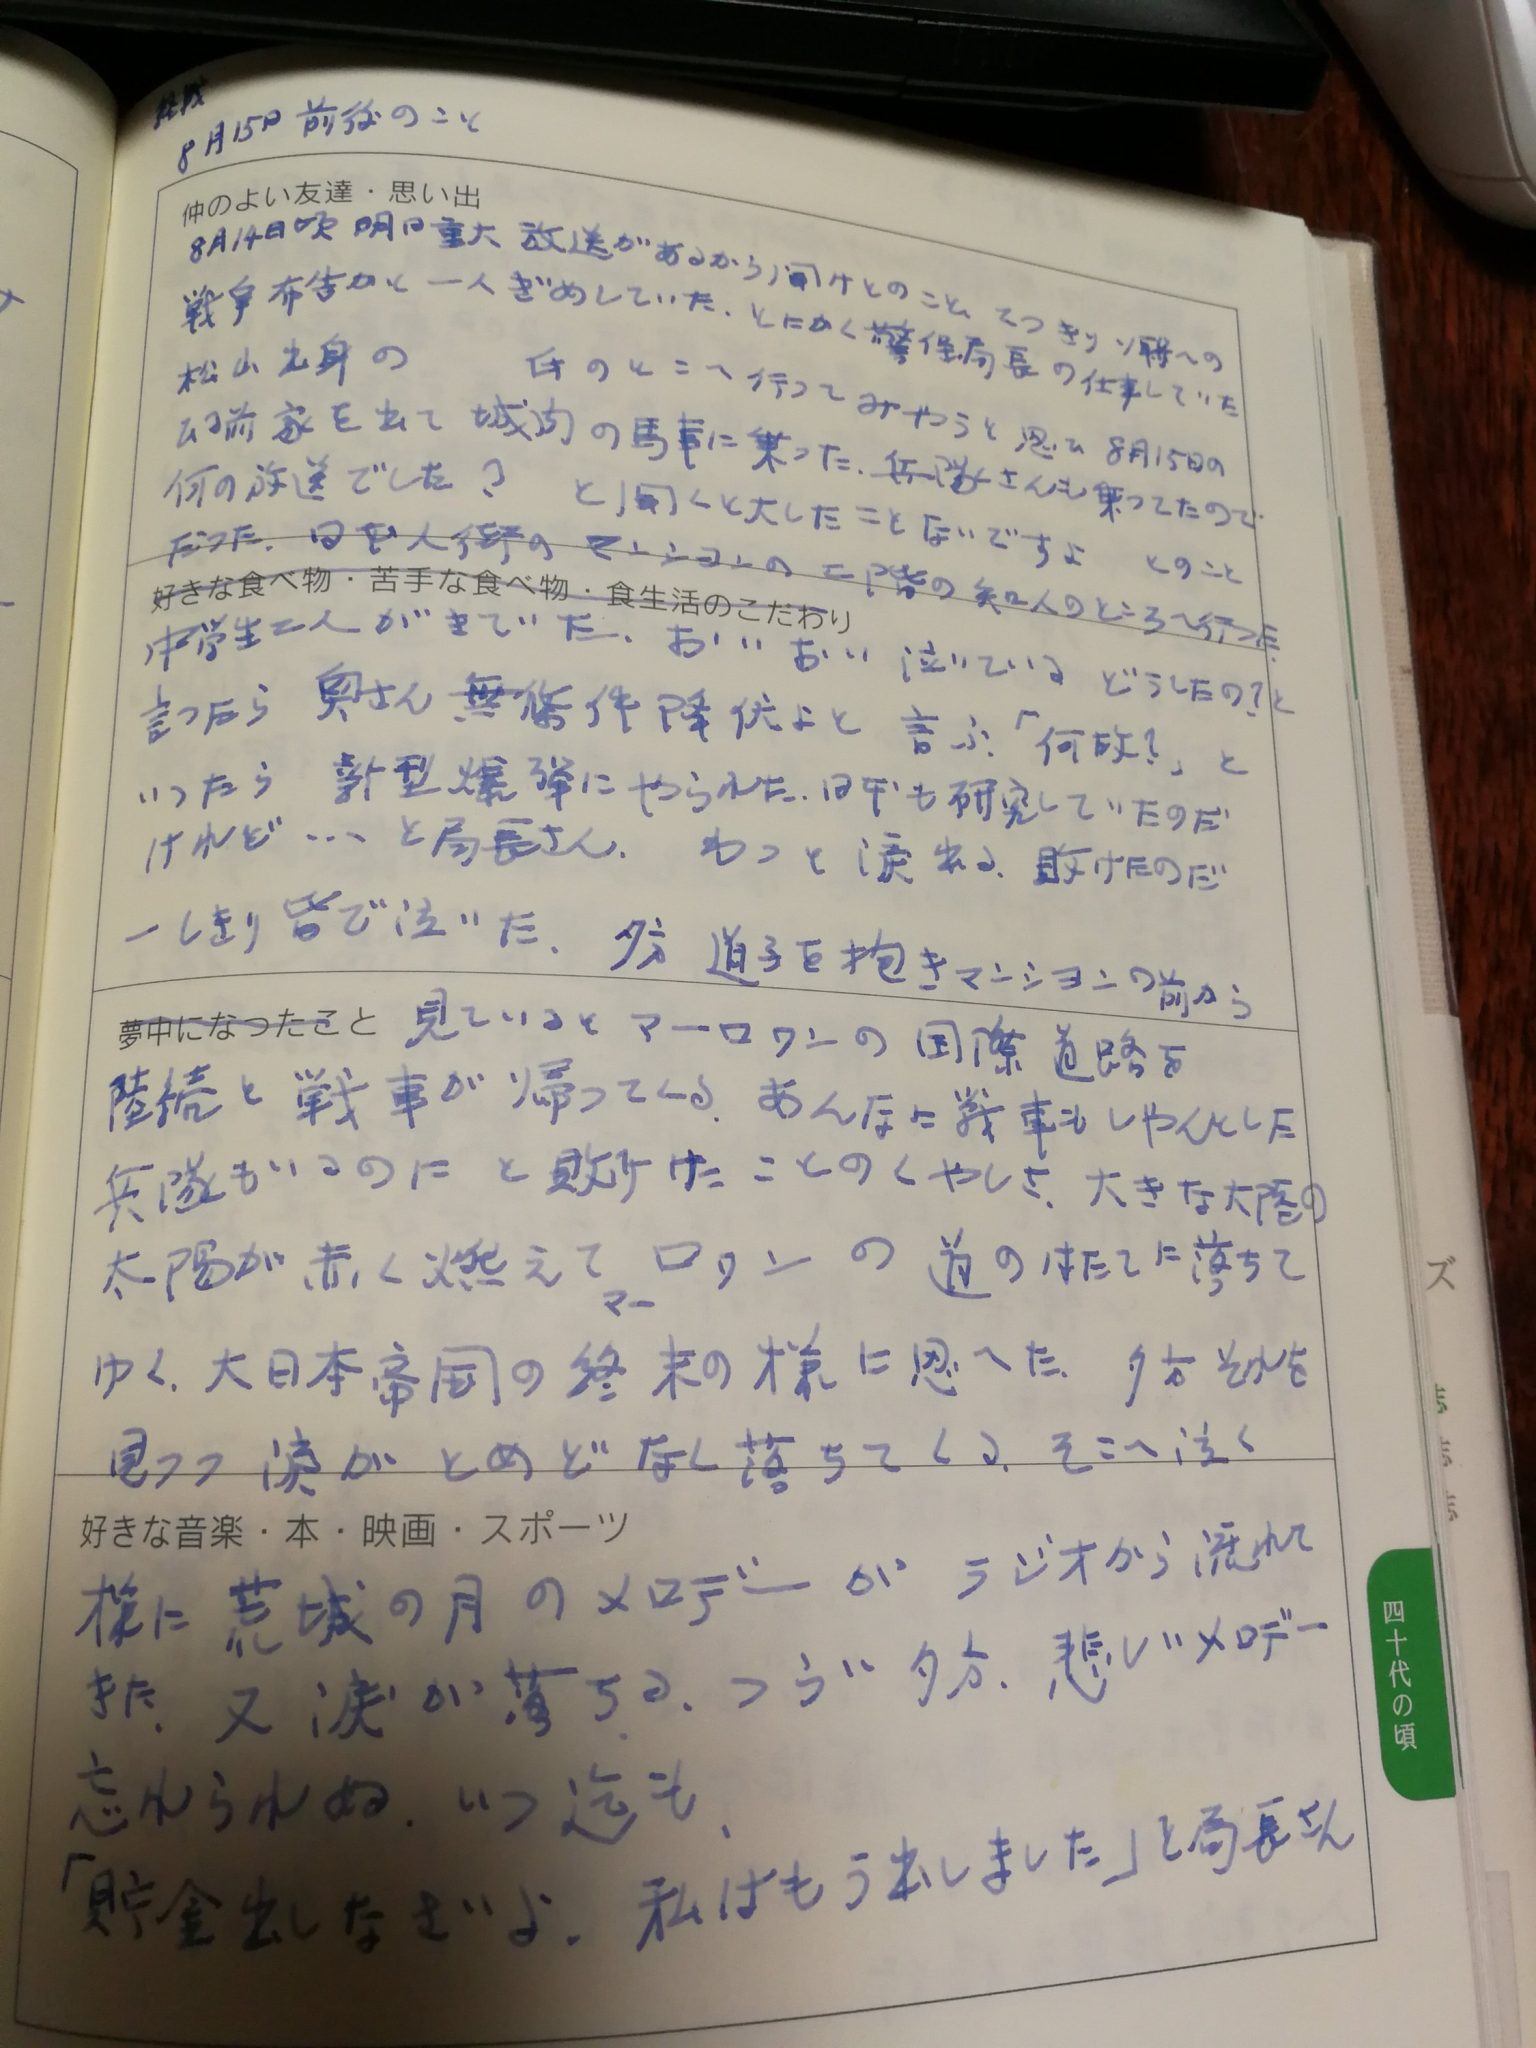 終戦
8月15日前後のこと
仲のよい友達・思い出
8月14日頃 明日重大放送があるから聞けとのこと、てつきりソ聯への
戦争布告かと一人ぎめしていた、とにかく警保局長の仕事していた
松山出身の 氏のところへ行ってみやうと思ひ 8月15日の
家を出て城内の馬車に乗った、兵隊さんも乗ってたので
何の放送でした? と聞くと大したことないですよ とのこと
だった、日本人街のマンションの二階の知人のところへ行った、
好きな食べ物・苦手な食べ物・食生活のこだわり
中学生二人がきていた、おいおい泣いている どうしたの?と
言つたら 奥さん無條件降伏よと 言ふ、「何故?」と
いつたら 新型爆弾にやられた、日本も研究していたのだ
けれど…と局長さん、わっと涙出る、敗けたのだ
一しきり皆で泣いた、夕方 道子を抱きマンションの前から
夢中になったこと 見ていると マーロワンの国際道路を
陸続と戦車が帰ってくる、あんなに戦車もしゃんとした
兵隊もいるのに と敗けたことのくやしさ、大きな大陸の
太陽が赤く燃えて マーロワンの道のはたてに落ちて
ゆく、大日本帝国の終末の様に思へた、夕方それを
見つつ 涙がとめどなく落ちてくる、そこへ泣く
好きな音楽・本・映画・スポーツ
様に荒城の月のメロデーがラジオから流れて
きた、又涙が落ちる、つらい夕方、悲しいメロデー
忘れられぬ、いつ迄も、
「貯金出しなさいよ、私はもう出しました」と局長さん
四十代の頃
ズ